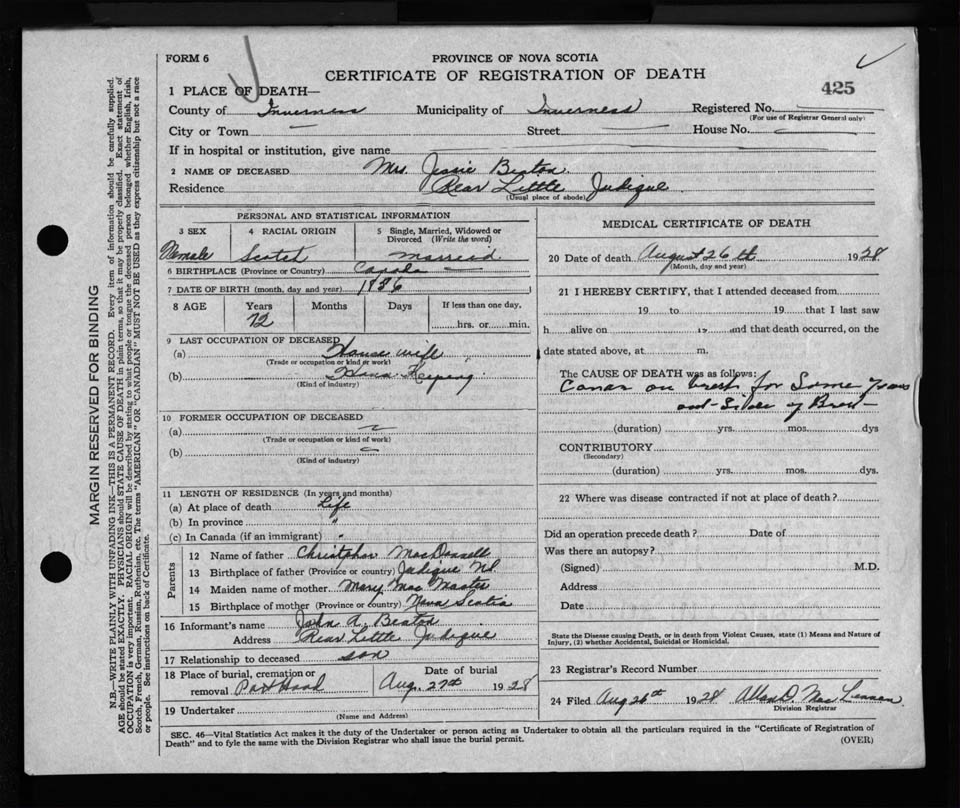 FORM 6
PROVINCE OF NOVA SCOTIA
CERTIFICATE OF REGISTRATION OF DEATH
425
1 PLACE OF DEATH—
County of Inverness Municipality of Inverness Registered No.
(For use of Registrar General only)
City or Town — Street — House No. —
If in hospital or institution, give name
2 NAME OF DECEASED Mrs. Jessie Beaton
Residence Rear Little Judique
(Usual place of abode)
MARGIN RESERVED FOR BINDING
N.B.—WRITE PLAINLY WITH UNFADING INK—THIS IS A PERMANENT RECORD. Every item of information should be carefully supplied.
AGE should be stated EXACTLY. PHYSICIANS should STATE CAUSE OF DEATH in plain terms, so that it may be properly classified. Exact statement of
OCCUPATION is very important. RACIAL ORIGIN will be described by stating to what people or tongue the deceased person belonged whether English, Irish,
Scotch, French, German, Russian, Ruthenian, etc. The terms "AMERICAN" OR "CANADIAN" MUST NOT BE USED as they express citizenship but not a race
or people. See instructions on back of Certificate.
PERSONAL AND STATISTICAL INFORMATION
3 SEX 4 RACIAL ORIGIN 5 Single, Married, Widowed or
Divorced (Write the word)
Female Scotch Married
6 BIRTHPLACE (Province or Country) Canada —
7 DATE OF BIRTH (month, day and year) 1836
8 AGE Years Months Days If less than one day,
72 hrs. or min.
9 LAST OCCUPATION OF DECEASED
(a) House wife
(Trade or occupation or kind of work)
(b) Keeping
(Kind of industry)
10 FORMER OCCUPATION OF DECEASED
(a)
(Trade or occupation or kind of work)
(b)
(Kind of industry)
11 LENGTH OF RESIDENCE (In years and months)
(a) At place of death Life
(b) In province "
(c) In Canada (if an immigrant) "
Parents
12 Name of father MacDonnell
13 Birthplace of father (Province or country) Judique
14 Maiden name of mother Mary Mac Master
15 Birthplace of mother (Province or country) Nova Scotia
16 Informant's name John A. Beaton
Address Rear Little Judique
17 Relationship to deceased son
18 Place of burial, cremation or Date of burial
removal Port Hood Aug. 27th 1928
19 Undertaker
(Name and Address)
MEDICAL CERTIFICATE OF DEATH
20 Date of death August 26th 1928
(Month, day and year)
21 I HEREBY CERTIFY, that I attended deceased from
19 to 19 that I last saw
h alive on 19 and that death occurred, on the
date stated above, at m.
The CAUSE OF DEATH was as follows:
on brest for Some years
(duration) yrs. mos. dys
CONTRIBUTORY
(Secondary)
(duration) yrs. mos. dys.
22 Where was disease contracted if not at place of death?
Did an operation precede death? Date of
Was there an autopsy?
(Signed) M.D.
Address
Date
State the Disease causing Death, or in death from Violent Causes, state (1) Means and Nature of
Injury, (2) whether Accidental, Suicidal or Homicidal.
23 Registrar's Record Number
24 Filed Aug 26th 1928 Allan D. Mac Lennan
Division Registrar
SEC. 46—Vital Statistics Act makes it the duty of the Undertaker or person acting as Undertaker to obtain all the particulars required in the "Certificate of Registration of
Death" and to fyle the same with the Division Registrar who shall issue the burial permit.
(OVER)